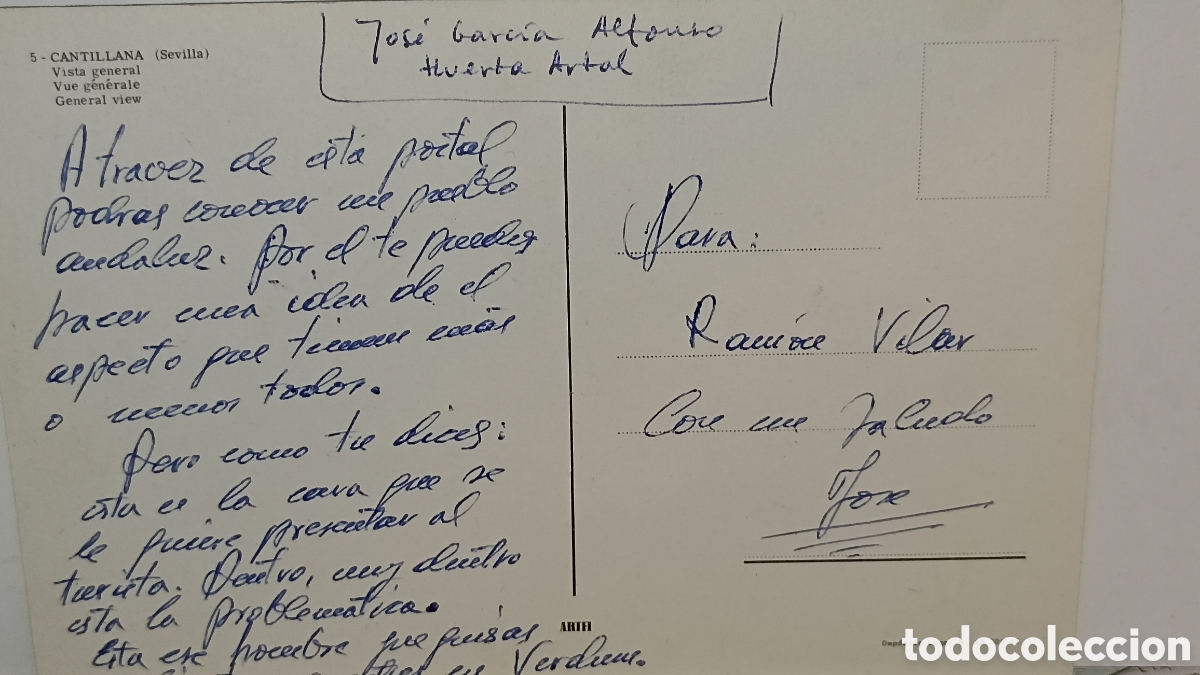 José García Alfonso
Huerta Artal
5 - CANTILLANA (Sevilla)
Vista general
Vue générale
General view
A travez de esta postal
podras conocer un pueblo
andaluz. Por el te puedes
hacer una idea de el
aspecto que tienen más
o menos todos.
Pero como tu dices:
esta es la cara que se
le quiere presentar al
turista. Dentro, muy dentro
esta la problemática.
Esta ese hombre que quisás
en Verdum.
Para:
Ramón Vilar
Con un saludo
Jose
ARTFI
todocoleccion